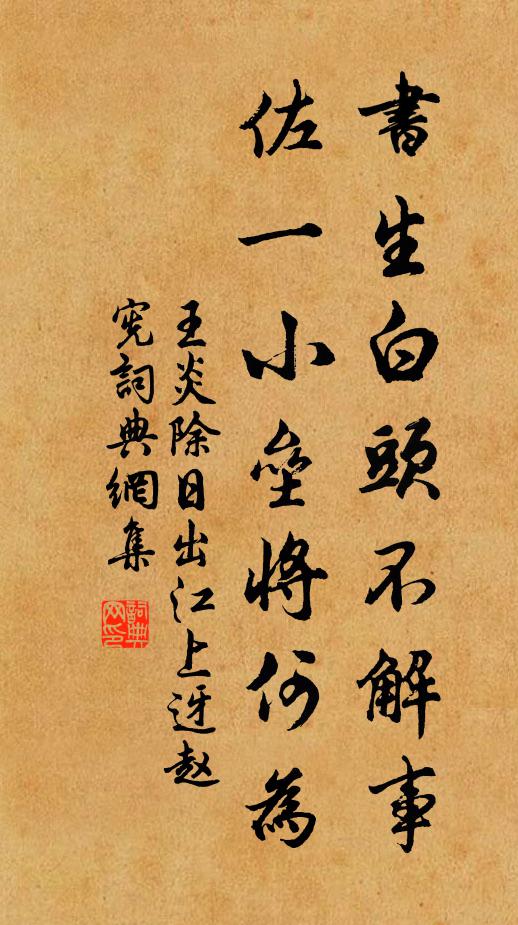 書生白頭不解事
佐一小壘將何為
王炎除日出江上迓赵
宪詞典網集
詞典
网印